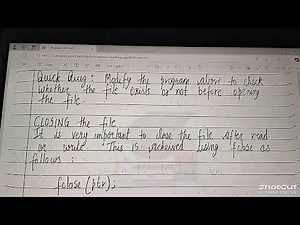 Quick Quiz: Modify the program above to check
whether the file exists or not before opening
the file.
CLOSING the file
It is very important to close the file after read
or write. This is achieved using fclose as
follows:
fclose (ptr);
SHOTCUT